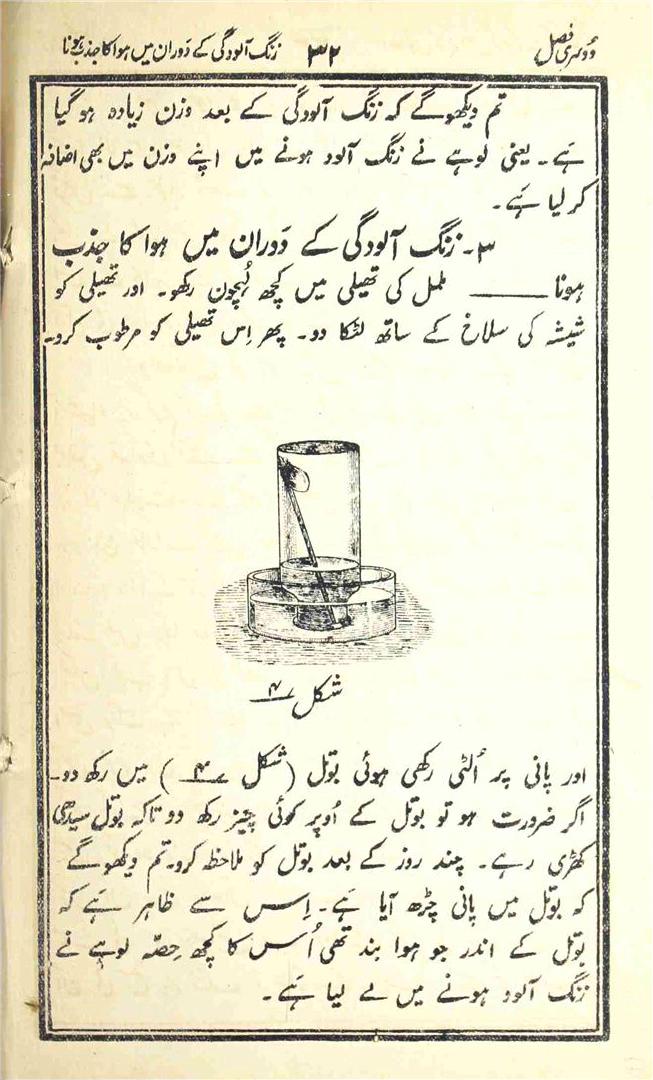 دوسری فصل ۳۲ زنگ آلودگی کے دَوران میں ہوا کا جذب ہونا
تم دیکھوگے کہ زنگ آلودگی کے بعد وزن زیادہ ہو گیا
ہَے۔ یعنی لوہے نے زنگ آلود ہونے میں اپنے وزن میں بھی اضافہ
کر لیا ہَے۔
۳۔ زنگ آلودگی کے دَوران میں ہوا کا جذب
ہونا ـــــــ ململ کی تھیلی میں کچھ لُہچون رکھو۔ اور تھیلی کو
شیشہ کی سلاخ کے ساتھ لٹکا دو۔ پھر اِس تھیلی کو مرطوب کرو۔
شکل ۴
اور پانی پر اُلٹی رکھی ہوئی بوتل (شکل ۴) میں رکھ دو۔
اگر ضرورت ہو تو بوتل کے اُوپر کوئی چیز رکھ دو تاکہ بوتل سیدھی
کھڑی رہے۔ چند روز کے بعد بوتل کو ملاحظہ کرو۔ تم دیکھوگے
کہ بوتل میں پانی چڑھ آیا ہَے۔ اِس سے ظاہر ہَے کہ
بوتل کے اندر جو ہوا بند تھی اُس کا کچھ حِصّہ لوہے نے
زنگ آلود ہونے میں لے لیا ہَے۔